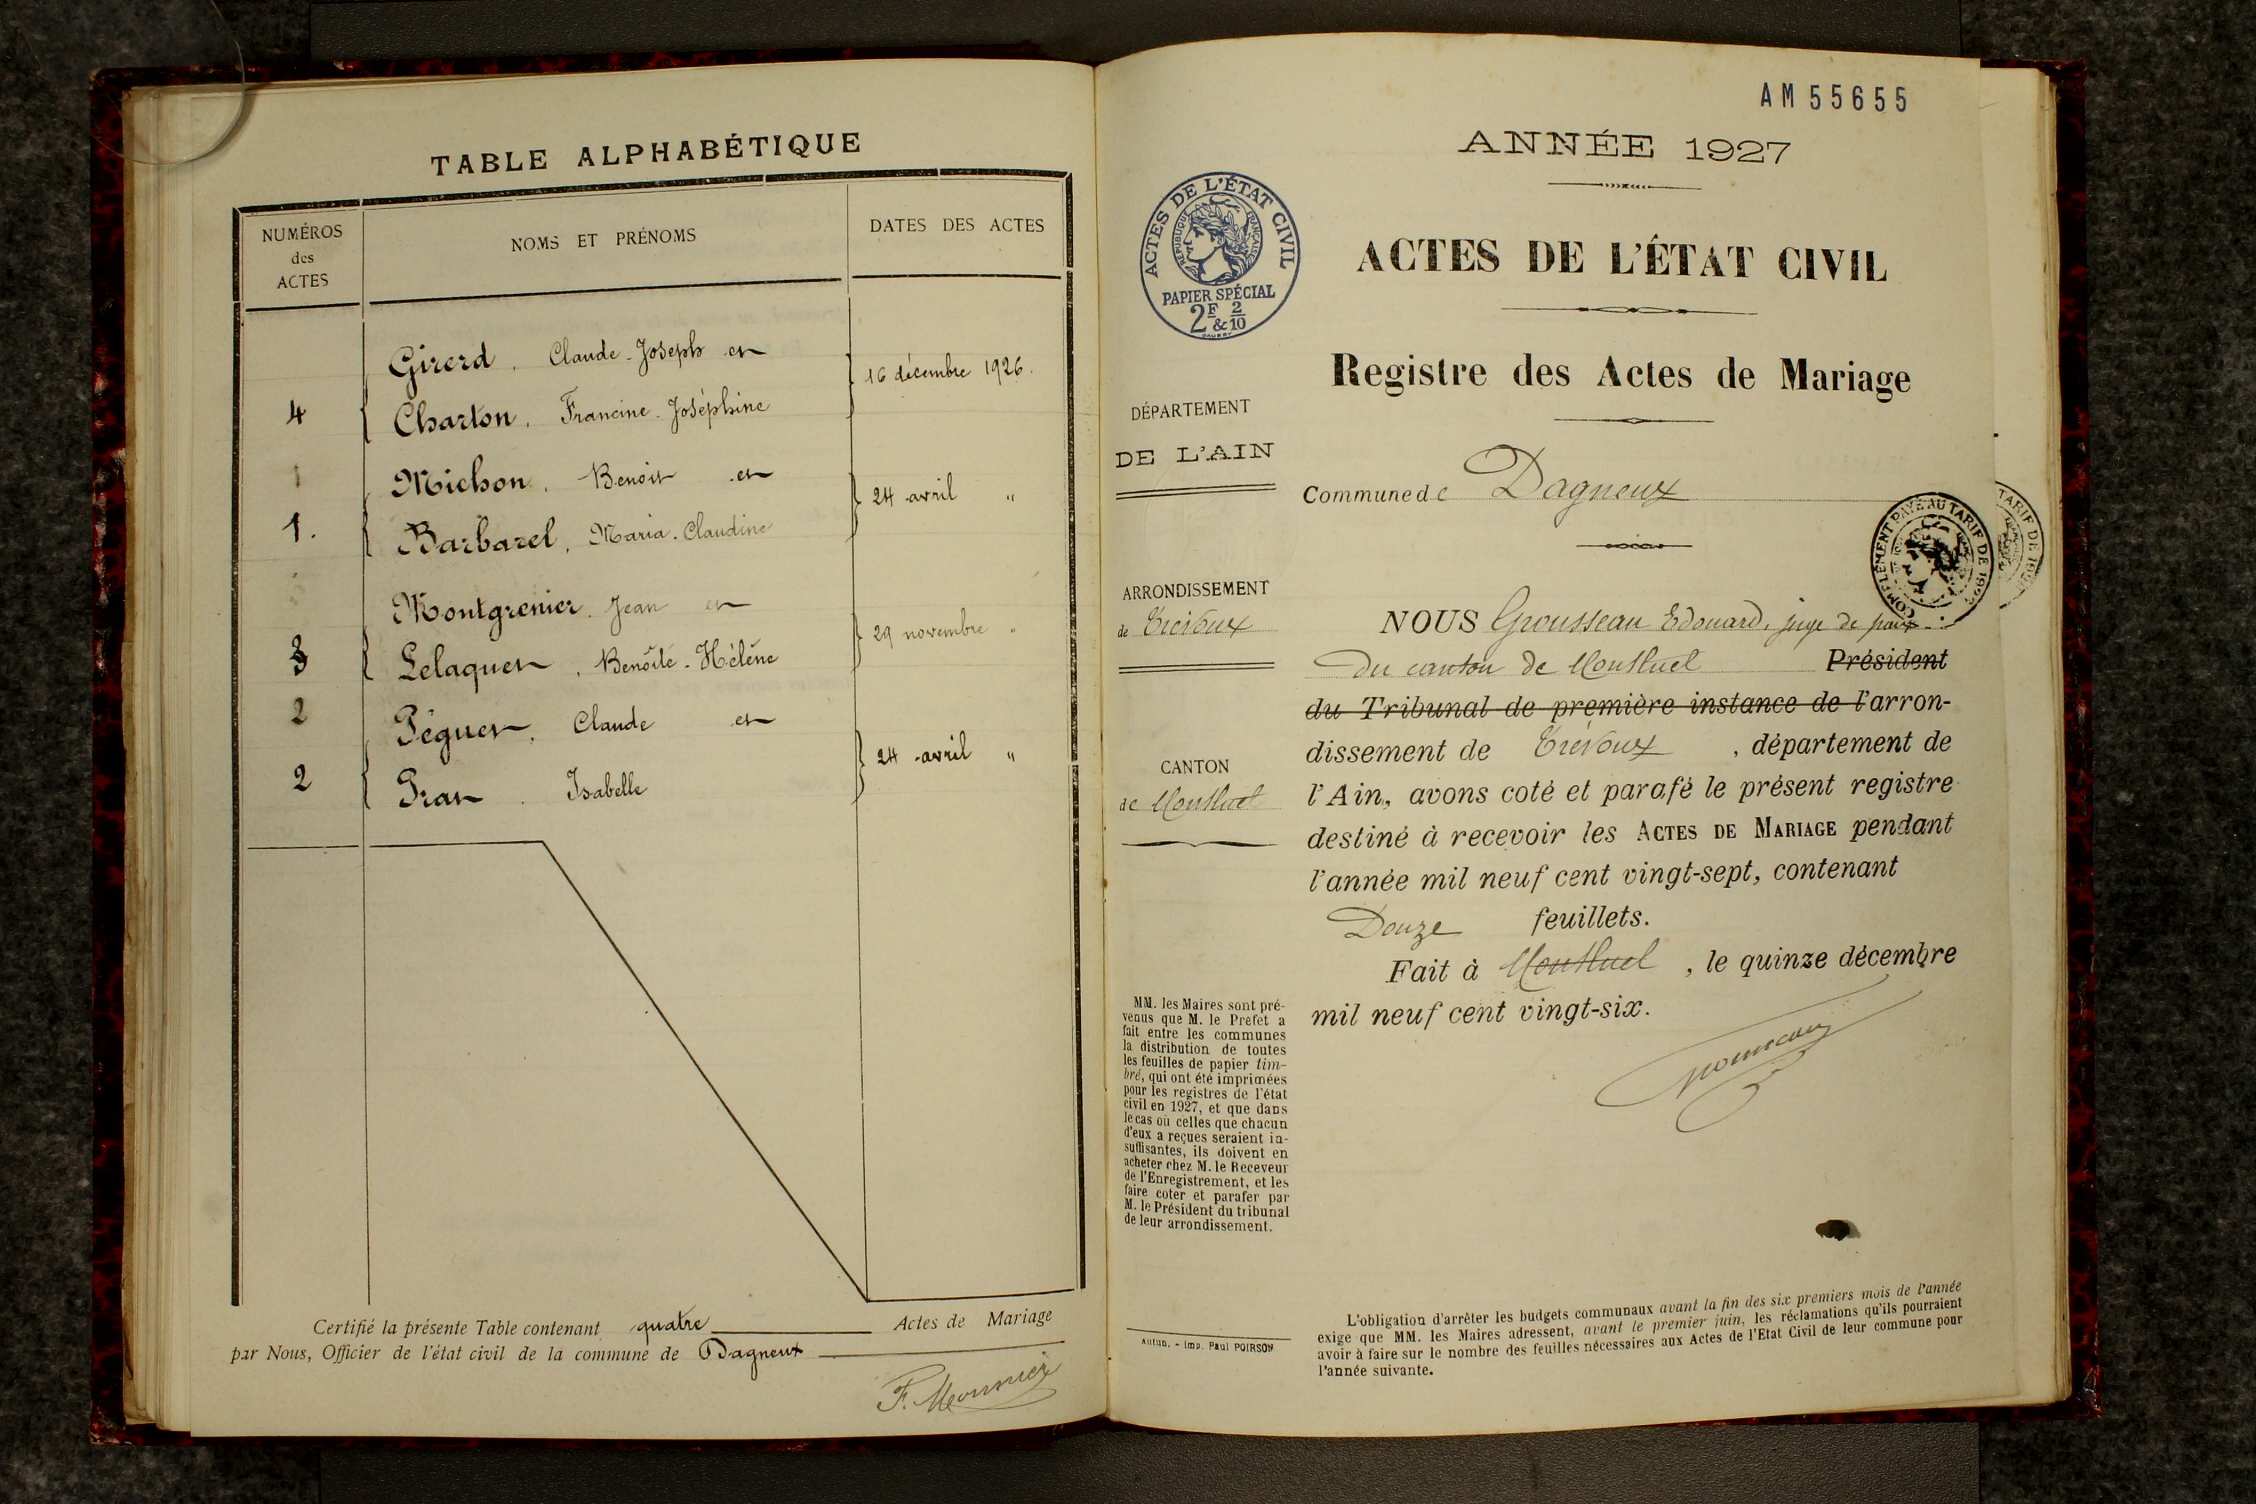 TABLE ALPHABÉTIQUE
NUMÉROS
des
ACTES
NOMS ET PRÉNOMS
DATES DES ACTES
Girerd. Claude-Joseph et
16 décembre 1926.
4
Charton. Francine-Joséphine
1
Michon. Benoit et
24 avril "
1.
Barbarel. Maria-Claudine
Montgrenier. Jean et
29 novembre "
3
Lelaquet. Benoîte-Hélène
2
Péguet. Claude et
24 avril "
2
Prat. Isabelle
Certifié la présente Table contenant quatre Actes de Mariage
par Nous, Officier de l'état civil de la commune de Dagneux
F. Meunier
AM 55655
ANNÉE 1927
ACTES DE L'ÉTAT CIVIL
RÉPUBLIQUE FRANÇAISE
PAPIER SPÉCIAL
2F & 2/10
ACTES DE L'ÉTAT CIVIL
Registre des Actes de Mariage
DÉPARTEMENT
DE L'AIN
Commune de Dagneux
COMPLÉMENT PAYÉ AU TARIF DE
TARIF DE
ARRONDISSEMENT
de Trévoux
CANTON
de Montluel
NOUS Grousseau Edouard, juge de paix
du canton de Montluel Président
du Tribunal de première instance de l'arron-
dissement de Trévoux, département de
l'Ain, avons coté et parafé le présent registre
destiné à recevoir les ACTES DE MARIAGE pendant
l'année mil neuf cent vingt-sept, contenant
Douze feuillets.
Fait à Montluel, le quinze décembre
mil neuf cent vingt-six.
Grousseau
MM. les Maires sont pré-
venus que M. le Préfet a
fait entre les communes
la distribution de toutes
les feuilles de papier tim-
bré, qui ont été imprimées
pour les registres de l'état
civil en 1927, et que dans
le cas où celles que chacun
d'eux a reçues seraient in-
suffisantes, ils doivent en
acheter chez M. le Receveur
de l'Enregistrement, et les
faire coter et parafer par
M. le Président du tribunal
de leur arrondissement.
Autun. - Imp. Paul POIRSON
L'obligation d'arrêter les budgets communaux avant la fin des six premiers mois de l'année
exige que MM. les Maires adressent, avant le premier juin, les réclamations qu'ils pourraient
avoir à faire sur le nombre des feuilles nécessaires aux Actes de l'Etat Civil de leur commune pour
l'année suivante.